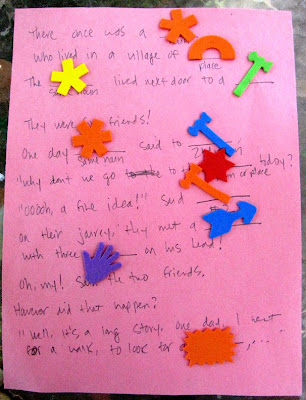 There once was a
who lived in a village of
place
The lived next door to a
same noun
They were friends!
One day said to
same noun
"Why don't we go to place today?
"Ooooh, a fine idea!" said
On their jouney, they met a
with three on his head!
Oh, my! Said the two friends,
However did that happen?
"Well, it's a long story. One day, I went
for a walk, to look for , ...